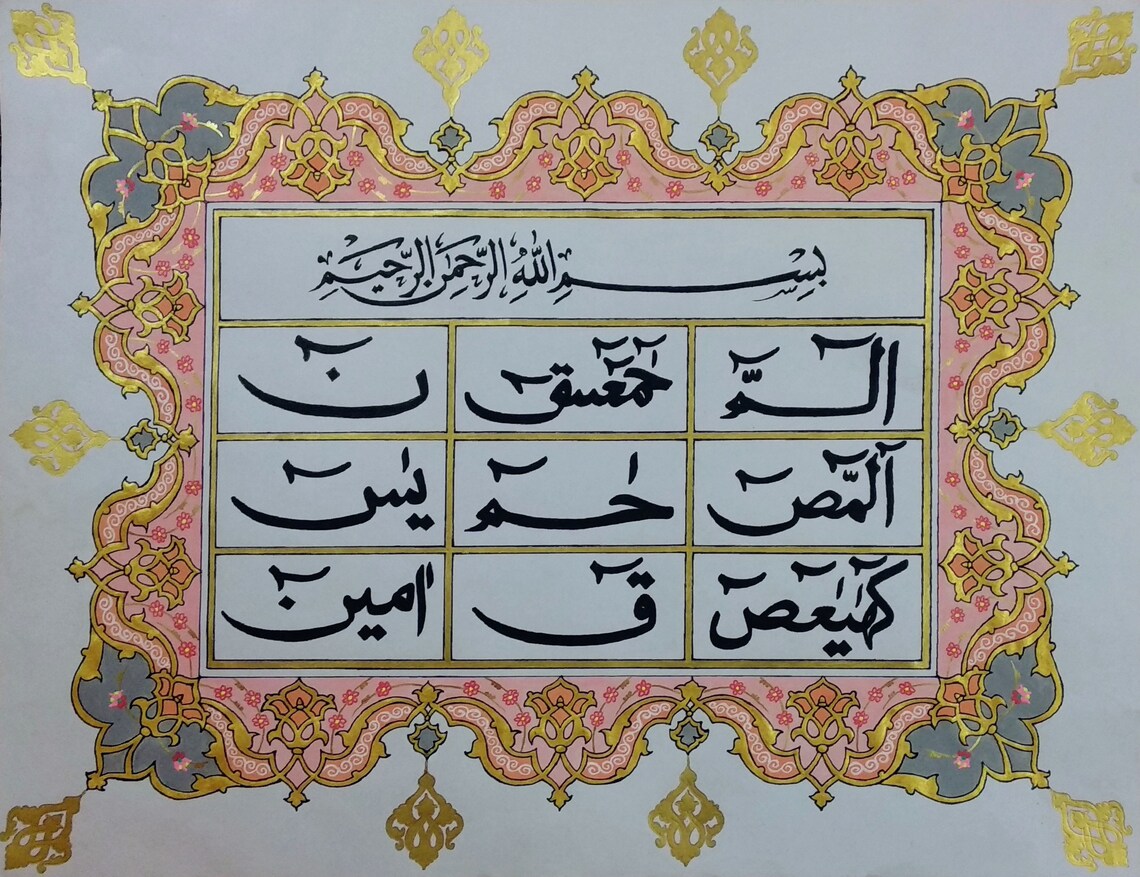 بِسْمِ اللّٰهِ الرَّحْمٰنِ الرَّحِيْمِ
الٓمّٓ حٰمٓعٓسٓقٓ نٓ
الٓمّٓصٓ حٰمٓ يٰسٓ
كٓهٰيٰعٓصٓ قٓ اٰمينٓ